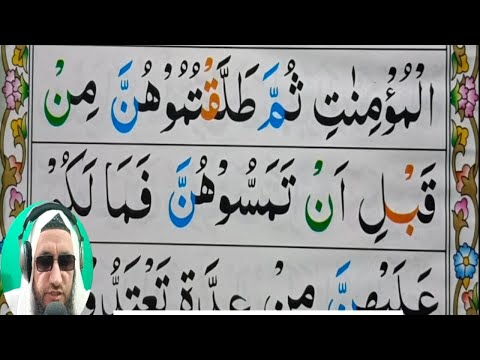 الْمُؤْمِنٰتِ ثُمَّ طَلَّقْتُمُوْهُنَّ مِنْ
قَبْلِ اَنْ تَمَسُّوْهُنَّ فَمَا لَكُمْ
عَلَيْهِنَّ مِنْ عِدَّةٍ